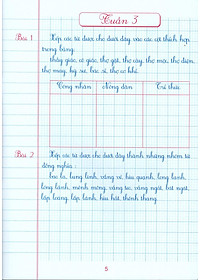 Tuần 3
Bài 1 Xếp các từ dưới cho dưới đây vào các cột thích hợp
trong bảng.
thầy giáo, cô giáo, thợ gặt, thợ cày, thợ mỏ, thợ điện,
thợ máy, kỹ sư, bác sĩ, thợ cơ khí.
Công nhân Nông dân Trí thức
Bài 2 Xếp các từ dưới đây thành những nhóm từ
đồng nghĩa:
bao la, lung linh, vắng vẻ, hiu quạnh, long lanh,
lóng lánh, mênh mông, vắng teo, vắng ngắt, bát ngát,
lấp loáng, lấp lánh, hiu hắt, thênh thang.
5